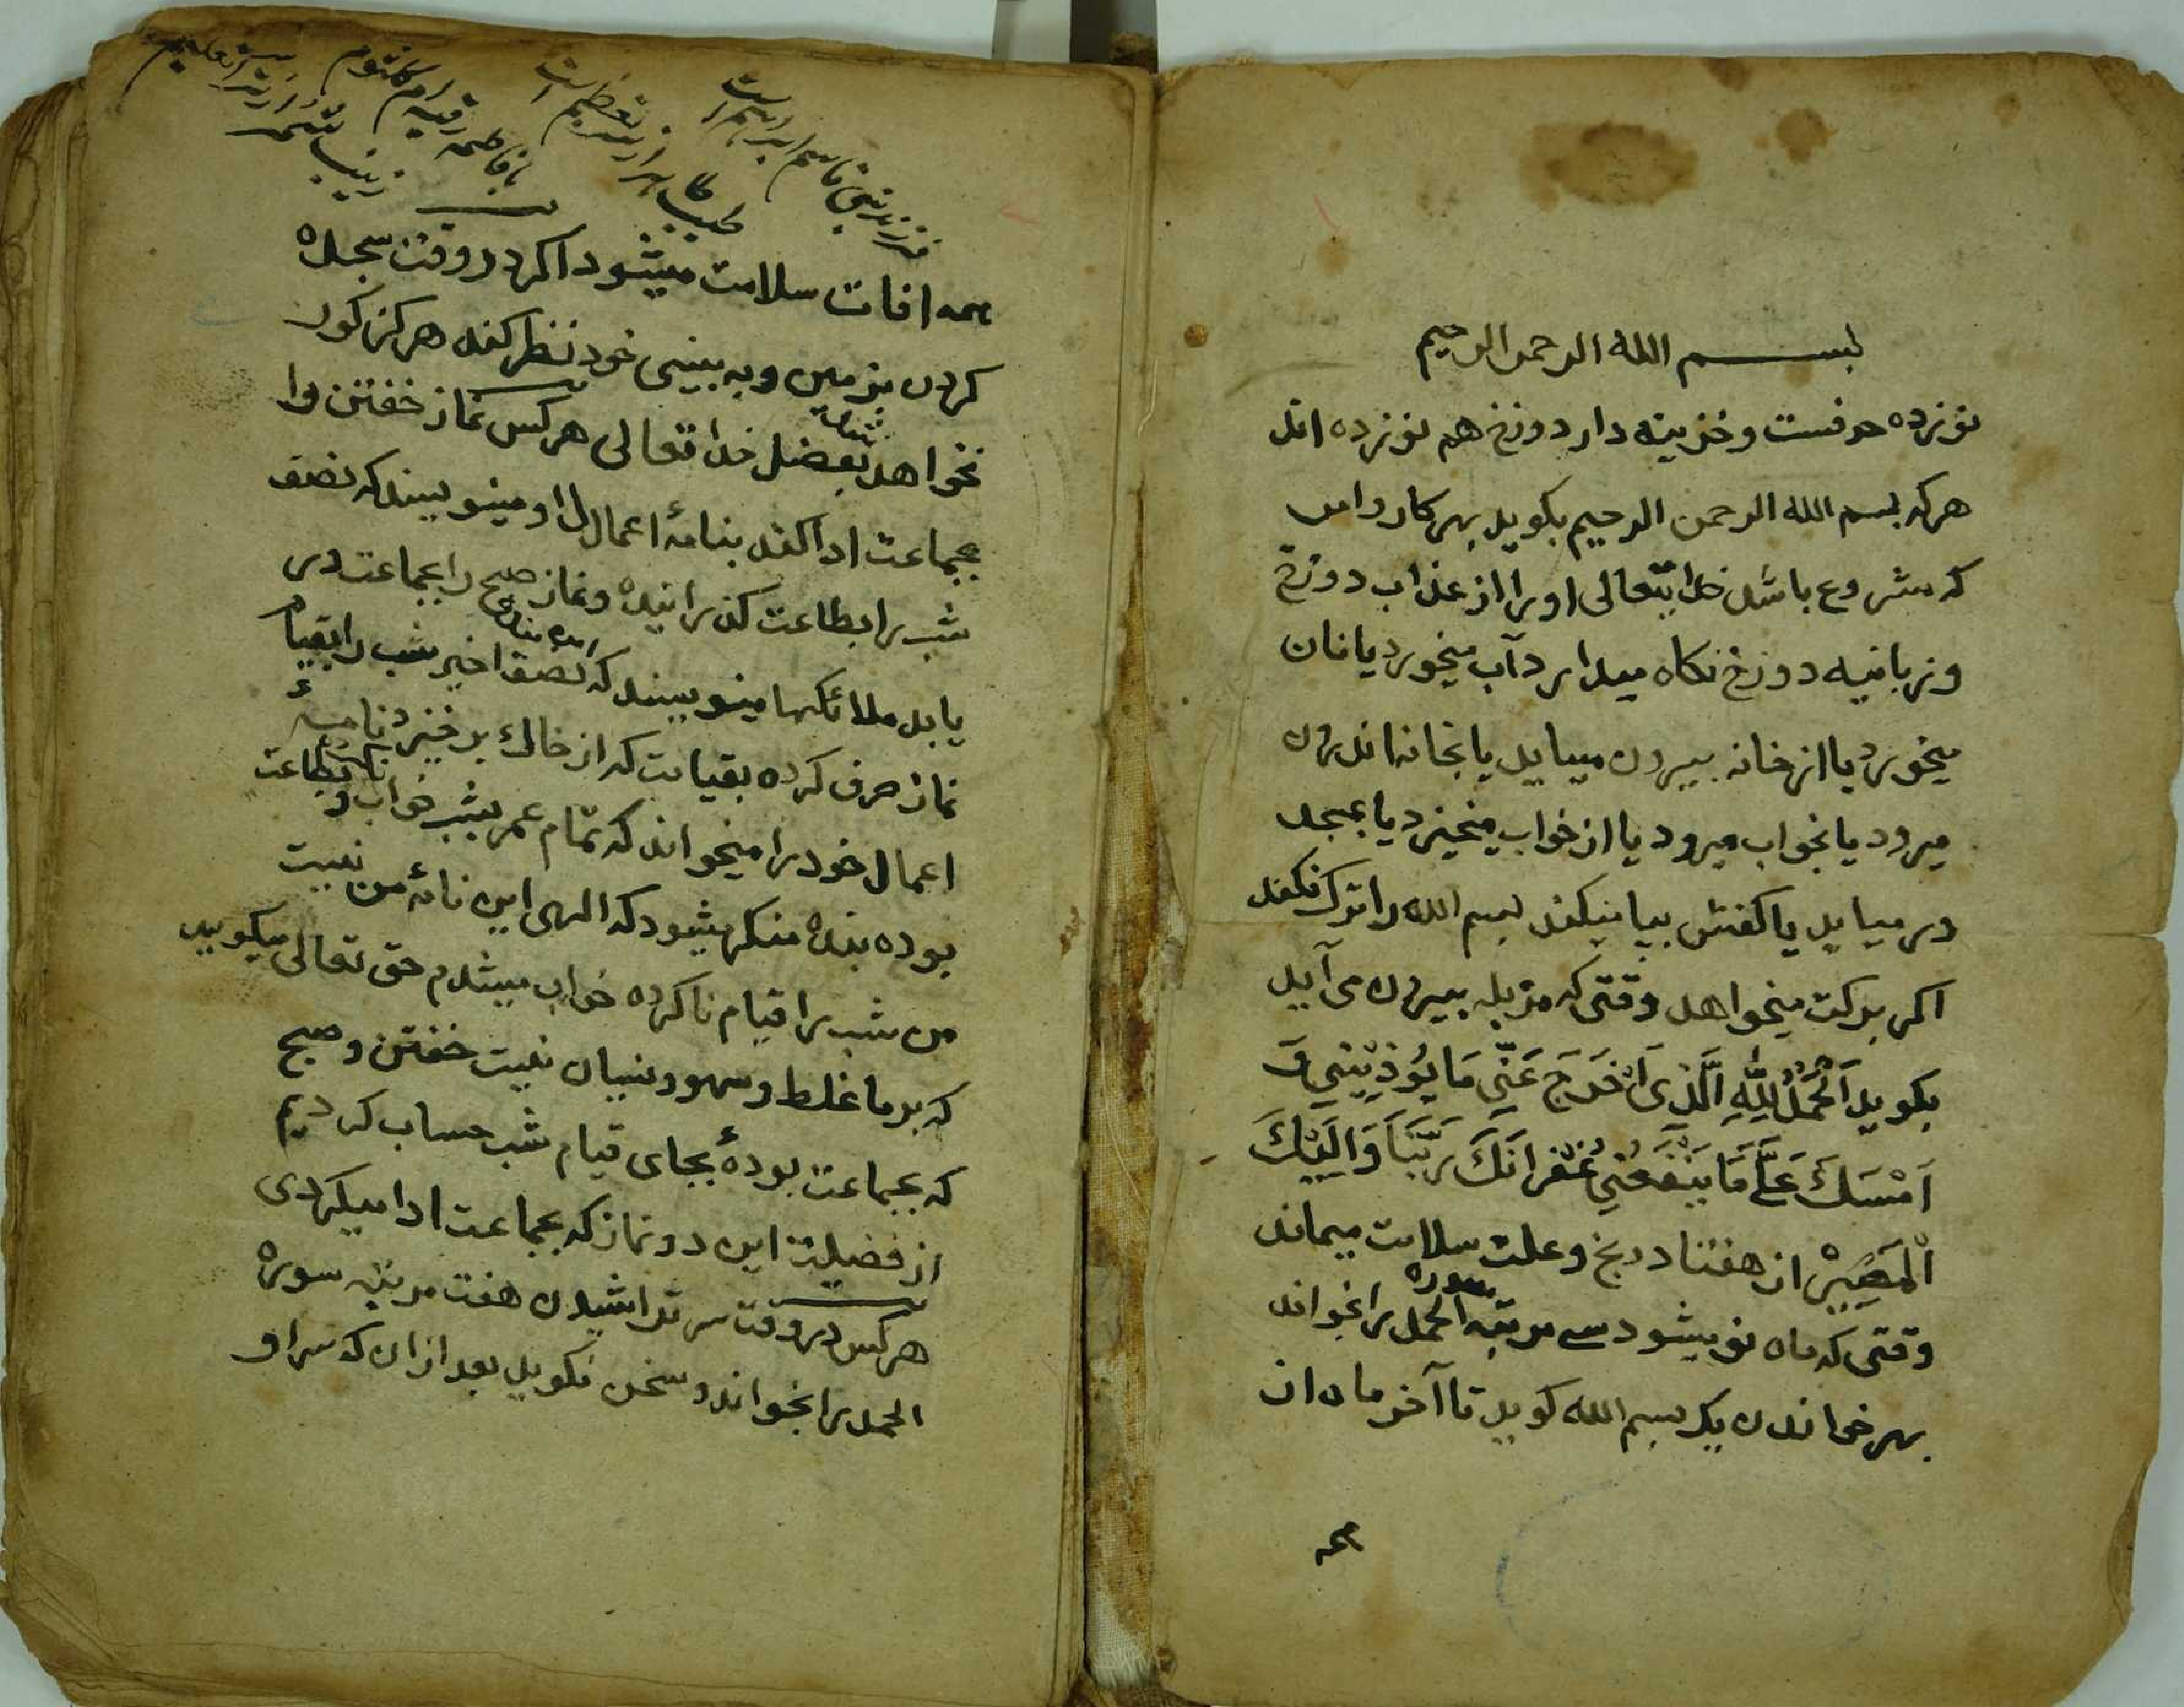 بسم الله الرحمن الرحیم
نوزده حرفست و خزینه دار دوزخ هم نوزده اند
هرکه بسم الله الرحمن الرحیم بکوید بهر کار و امر
که مشروع باشد خدایتعالی او را از عذاب دوزخ
و زبانیه دوزخ نکاه میدارد آب میخورد یا نان
میخورد یا از خانه بیرون میباید یا بخانه اندرون
میرود یا بخواب میرود یا از خواب میخیزد یا بمسجد
در میاید یا کفش بپا میکند بسم الله را ترک نکند
اکر برکت میخواهد وقتی که مزبله بیرون می آید
بکوید اَلْحَمْدُ لِلّٰهِ الَّذِی اَخْرَجَ عَنِّی مَا یُوْذِیْنِی وَ
اَمْسَکَ عَلَیَّ مَا یَنْفَعُنِی غُفْرَانَکَ رَبَّنَا وَاِلَیْکَ
الْمَصِیْرْ از هفتاد رنج و علت سلامت میماند
وقتی که ماه نو میشود سه مرتبه سوره الحمد را بخواند
بهر خواندن یک بسم الله کوید تا آخر ماه از
همه
فرزند نبی قاسم ابراهیم است
طیب طاهر از ره تعظیم است
با فاطمه رقیه ام کلثوم
زینب شمر ار تر اسر تعلیم
همه افات سلامت میشود اکر در وقت سجده
کردن بزمین و به بینی خود نظر کند هرکز کور
نخواهد شد بفضل خدا تعالی هرکس نماز خفتن را
بجماعت ادا کند بنامهٔ اعمال او مینویسند که نصف
شب را بطاعت کذرانیده و نماز صبح را بجماعت در
یابد ملائکها مینویسند که این بنده نصف اخیر شب را بقیام
نماز صرف کرده بقیامت که از خاک بر خیزد نامهٔ
اعمال خود را میخواند که تمام عمر بشب خواب ناکرده بطاعت
بوده بنده منکر میشود که الهی این نامهٔ من نیست
من شب را قیام ناکرده خواب میشدم حق تعالی میکوید
که بر ما غلط و سهو و نسیان نیست خفتن و صبح
که بجماعت بودهٔ بجای قیام شب حساب کردیم
از فضیلت این دو نماز که بجماعت ادا میکردی
هرکس در وقت سر تراشیدن هفت مرتبه سوره
الحمد را بخواند و سخن نکوید بعد ازان که سر او